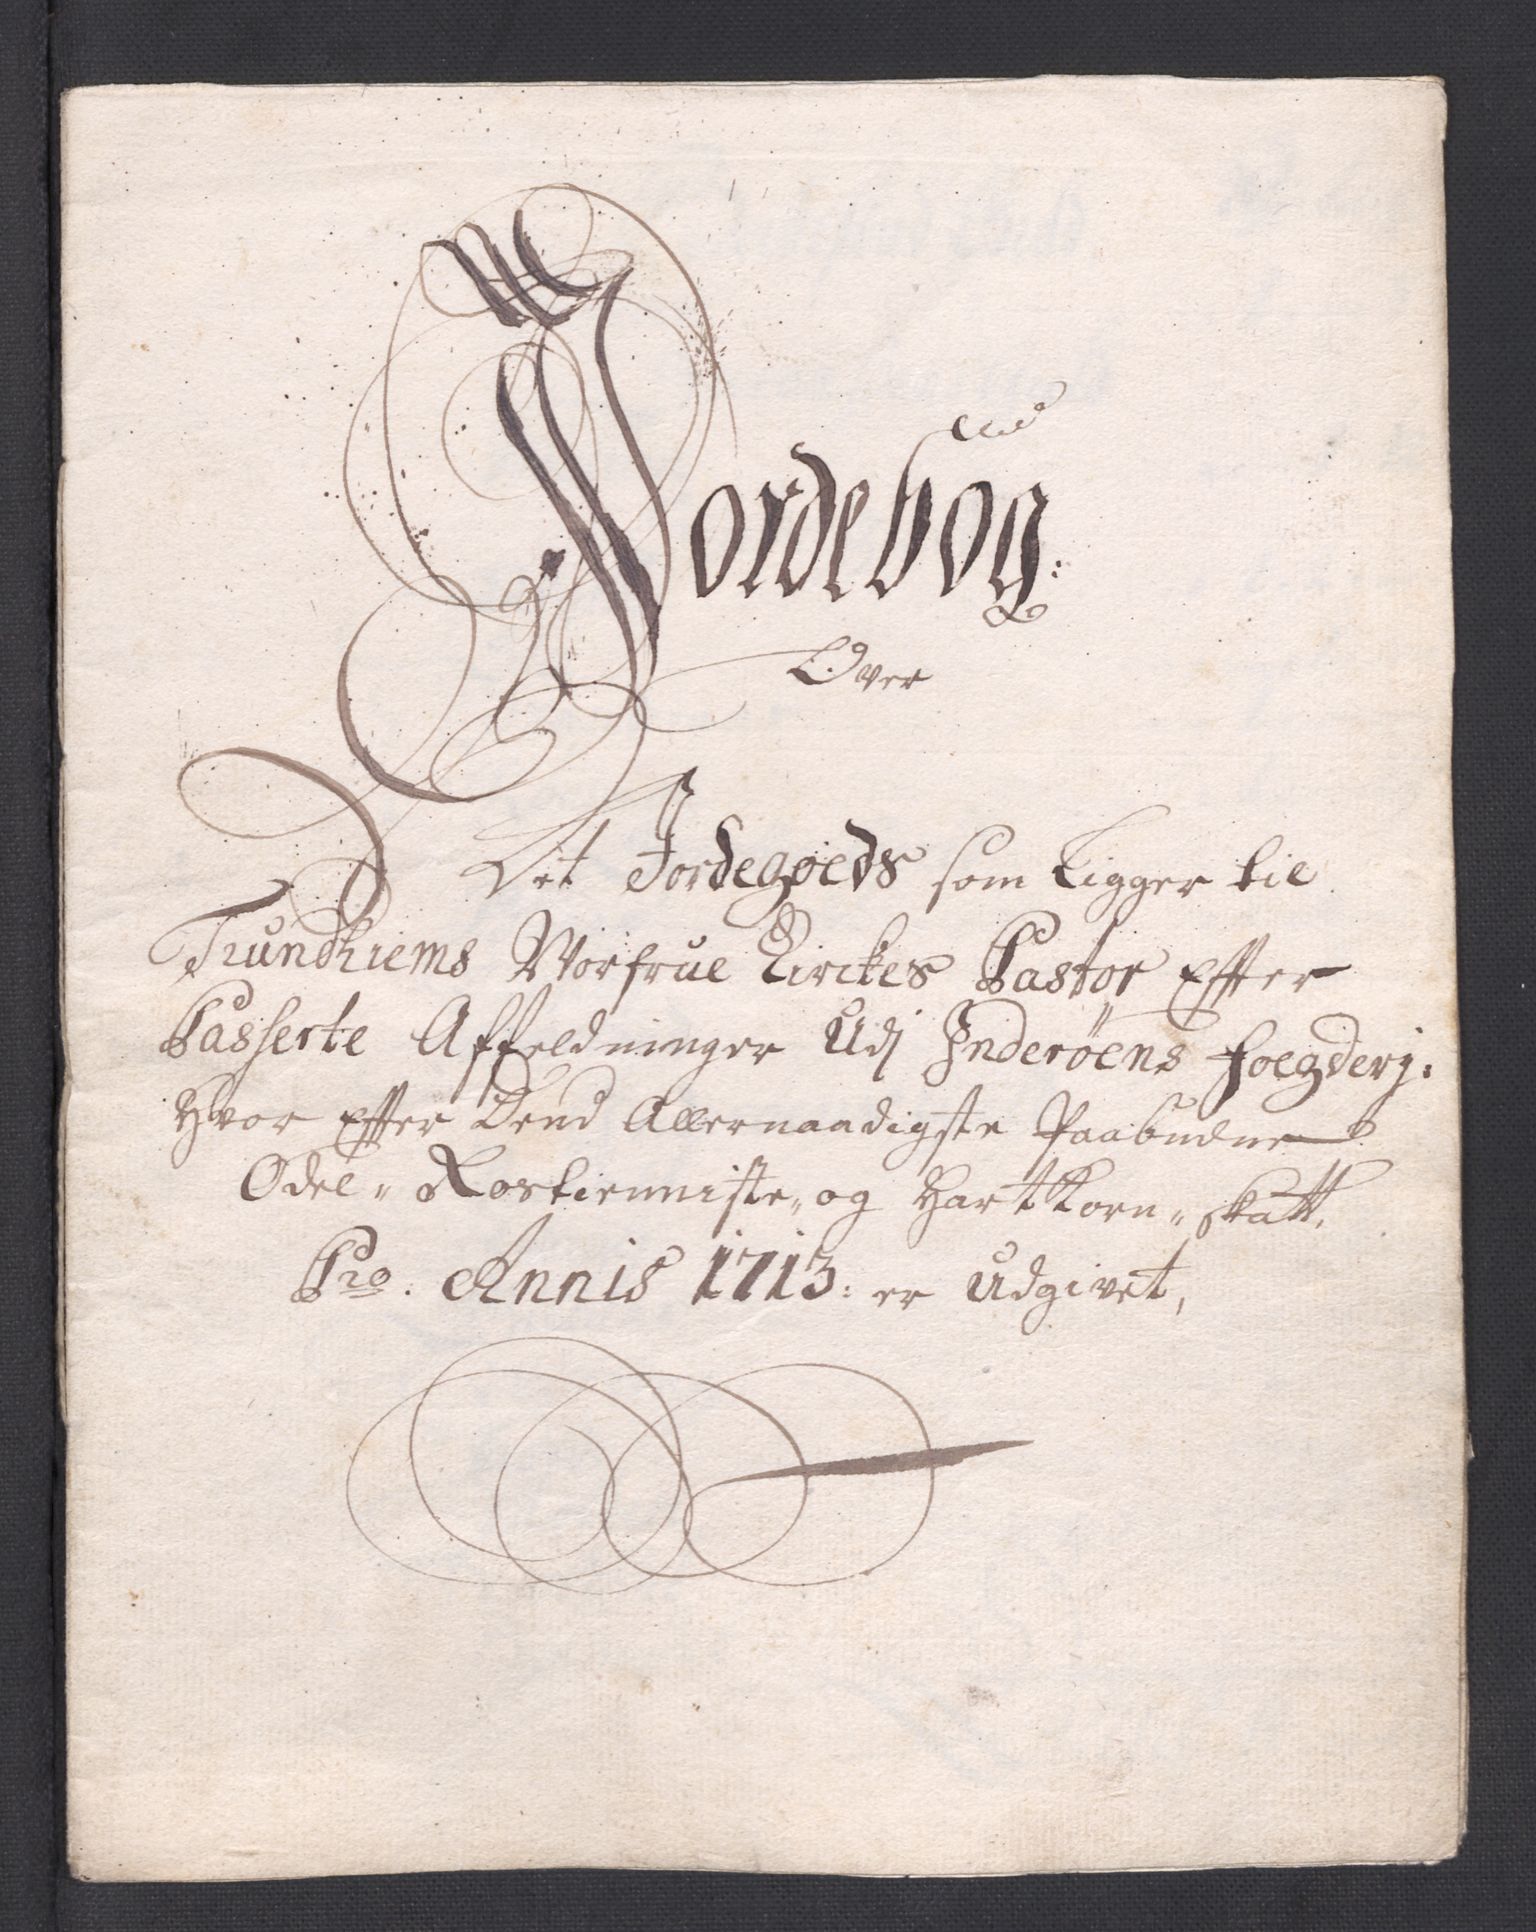 Jordebog:
Over
Det Jordegoeds som Ligger til
Trundhiems Worfrue Kirckes Pastor Effter
Passerte Affeldninger Udj Inderöens foegderj:
Hvor Effter Dend Allernaadigste Paabudne
Odel„ Rostienniste„ og HartKorn„ skatt,
Pro. Annis 1713: er Udgivet,